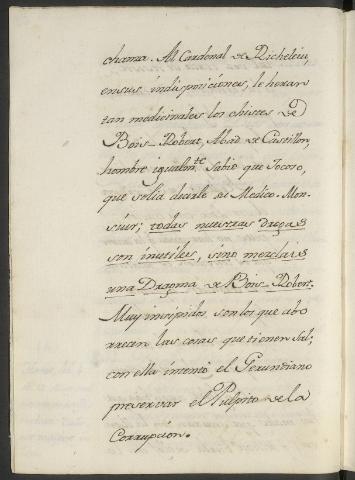 chama. Al Cardenal de Richelieu,
en sus indisposiciones, le heran
tan medicinales los chistes de
Bois-Robert, Abad de Castillon,
hombre igualmte. Sabio que Jocoso,
que solia decirle su Medico. Mon-
siur; todas nuestras drogas
son inutiles, sino mezclais
una Dragma de Bois-Robert.
Muy insipidos son los que abo
rrecen las cosas que tienen Sal;
con ella intentó el Gerundiano
preservar el Pulpito de la
Corrupcion.